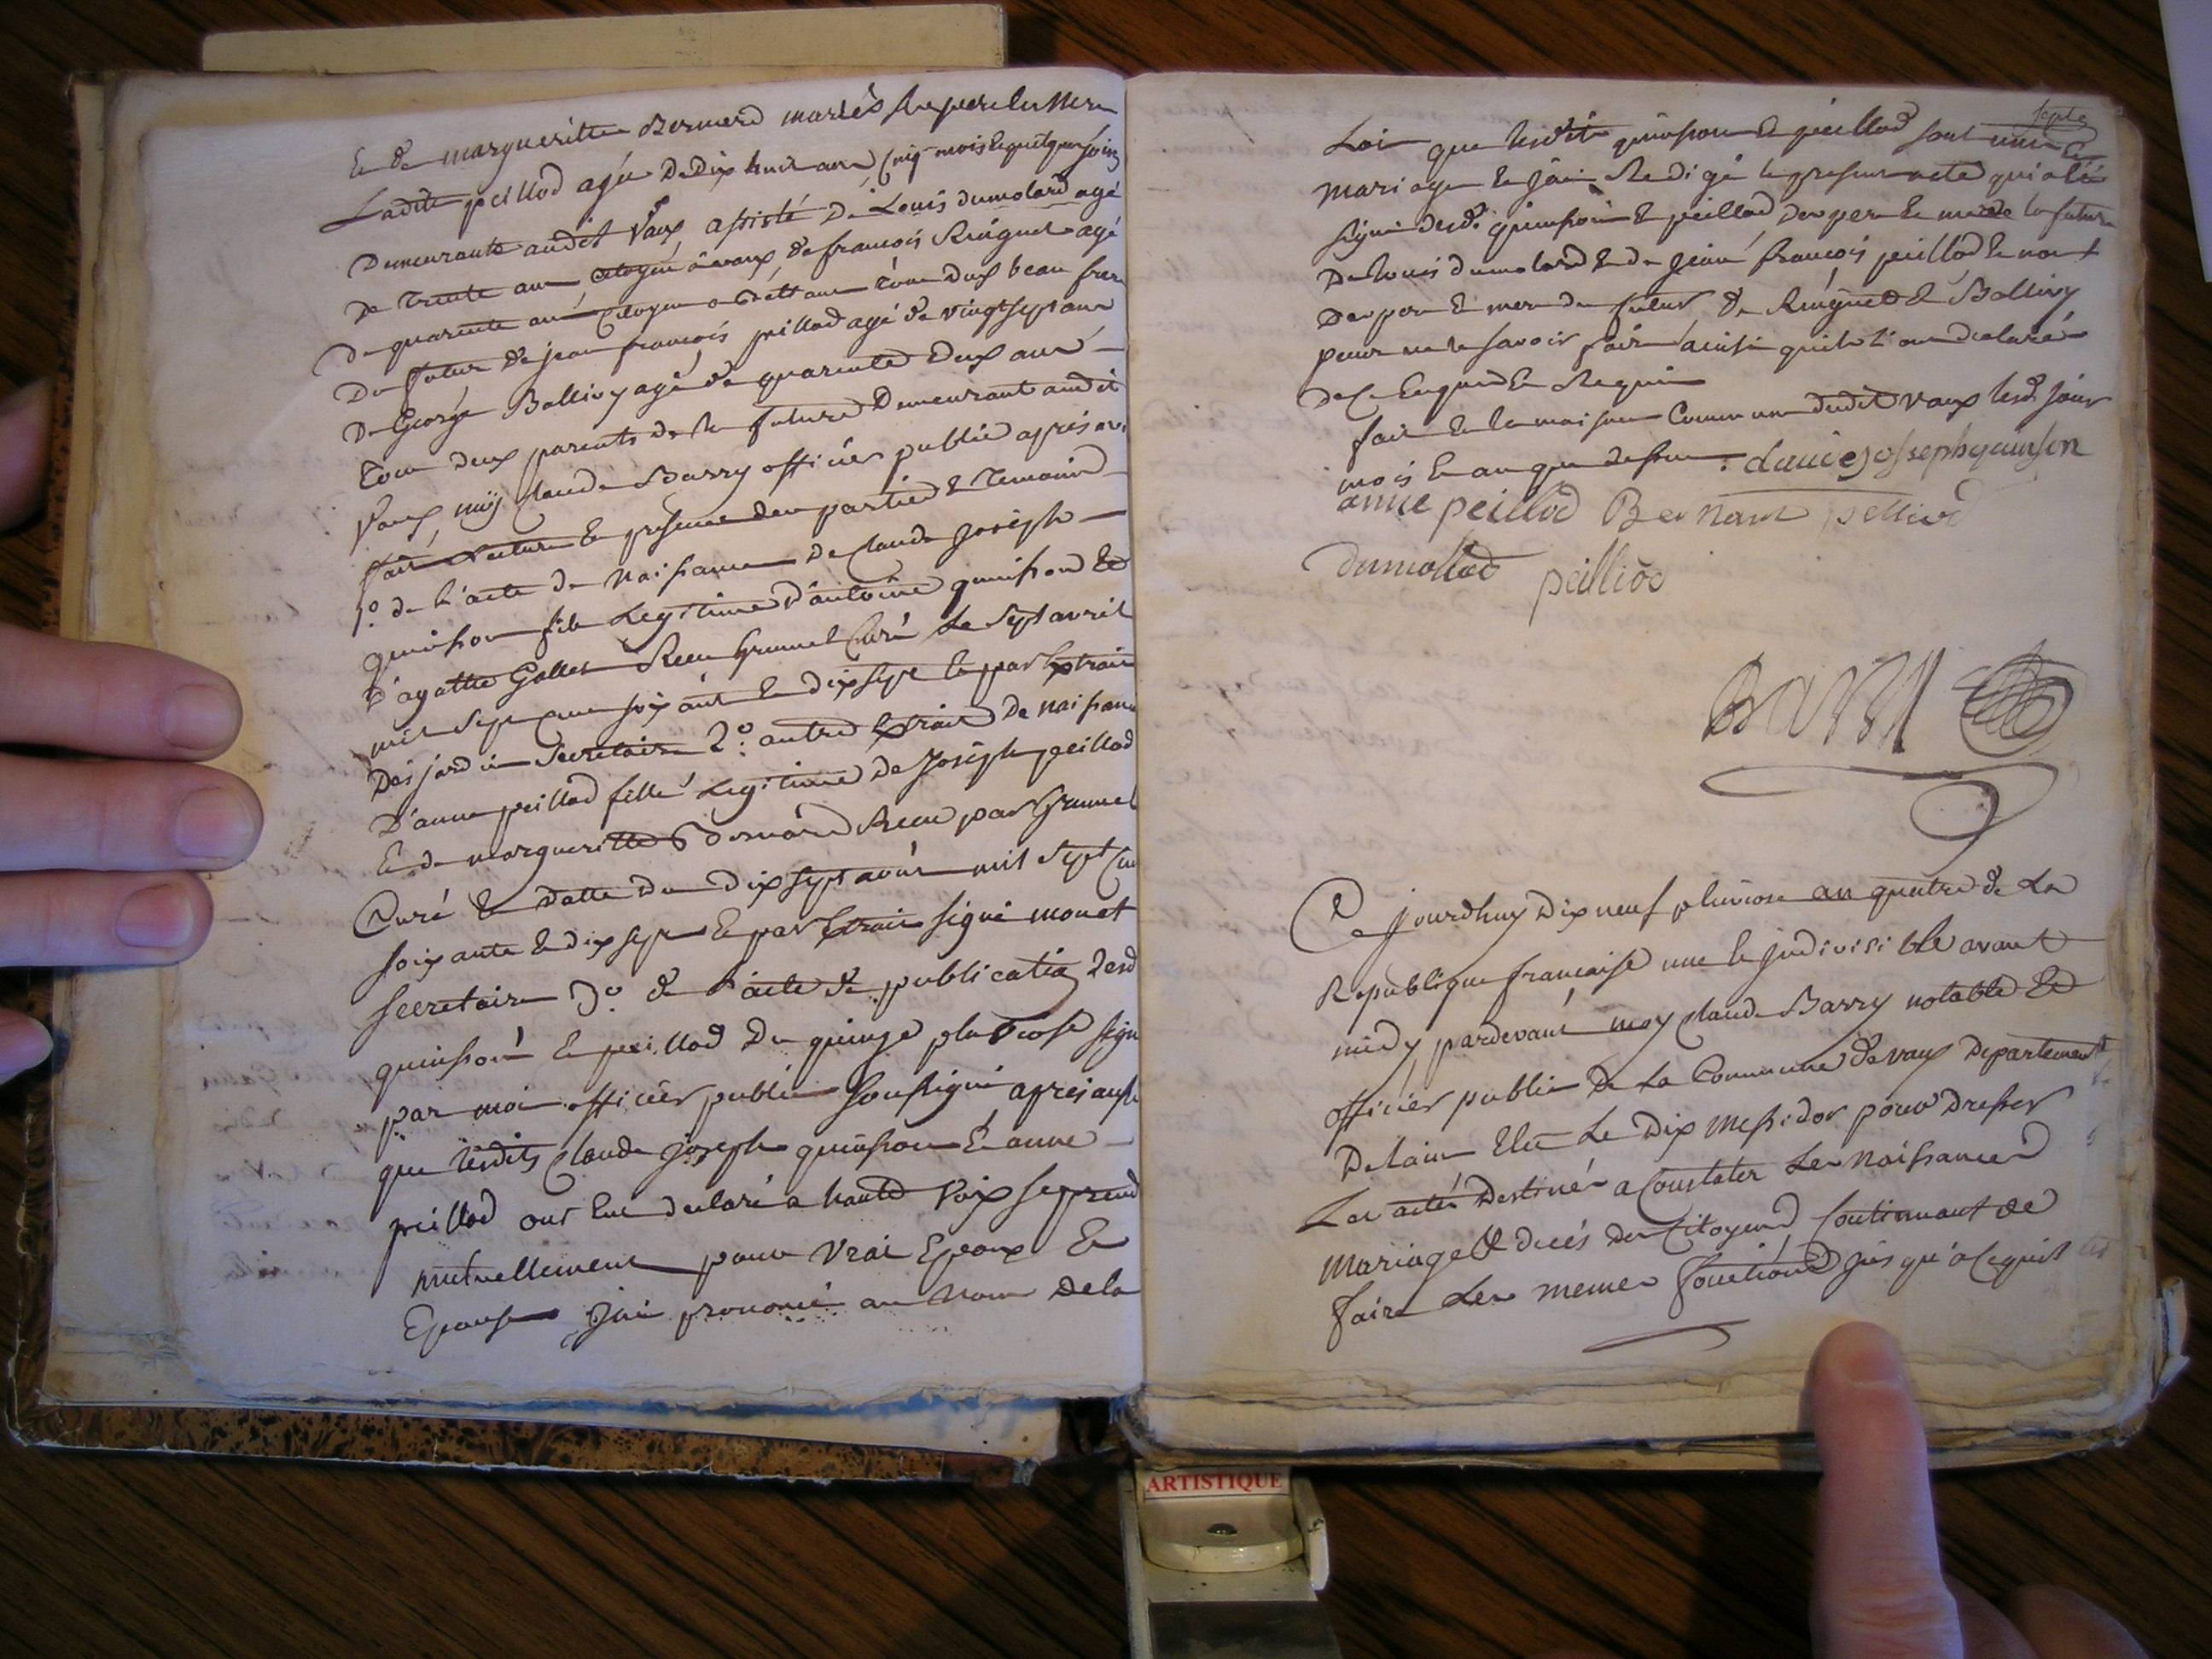 Et de margueritte Bernerd mariés Ses pere et Mere
Ladite peillod agée De Dix huit ans Cinq mois et quelques jours
Demeurante audit Vaux assisté De Louis dumolard agé
De Trente ans Citoyen a vaux De francois Ruignet agé
De quarente ans Citoyen a tous Deux beau frere
Du futur De jean francois peillod agé De vingt sept ans
De George Ballivy agé De quarente Deux ans
tous Deux parents De la future Demeurant audit
Vaux, moy Claude Barry officier public apres avoir
fait Lecture En presence des parties Et Temoins
1º. de L'acte De Naissance De Claude Joseph
quinson fils Legitime D'antoine quinson Et
D'agathe Gallet Recu Grumel Curé Le Sept avril
mil Sept cens soixante Et dix sept Et par Extrait
Desjardin Secretaire 2º. autre Extrait De naissance
D'anne peillod fille Legitime De Joseph peillod
Et De margueritte Bernard Recu par Grumel
Curé En Datte Du Dix sept aout mil Sept Cens
soixante Et dix sept Et par Extrait signé monet
secretaire 3º. De L'acte De publication Desd
quinson Et peillod Du quinze pluviose signé
par moi officier public Soussigné apres aussi
que Lesdits Claude Joseph quinson Et anne
peillod ont Eue declaré a haute Voix se prendre
mutuellement pour Vrai Epoux Et
Epouse Jai prononcé au Nom De la
Septe
Loi que Lesdits quinson Et peillod sont unis En
Mariage Et Jai Redigé Le present acte qui a été
signé desd. quinson Et peillod, Des pere Et mere De la future
De Louis dumolard Et De jean francois peillod Et non
Des pere Et mere Du futur De Ruignet Et Ballivy
pour ne le savoir faire ainsi quils L'ont declaré
De Ce Enquis Et Requis
fait En la maison Commune dudit Vaux lesd. jour
mois Et an que dessus . claude jossephquinson
anne peillod Bernard peilliod
Dumollard peilliod
BARRY
Ce jourdhuy Dix neuf pluviose an quatre De La
Republique francaise une Et Indivisible avant
midy pardevant moy Claude Barry notable Et
officier public De La Commune De vaux Departement
De Lain Elu Le Dix Messidor pour Dresser
Les actes Destinés a Constater Les Naissances
Mariage Et decés Des Citoyens, Continuant De
faire Les memes fonctions jusqu'a Cequil
ARTISTIQUE